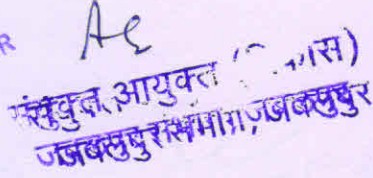 R
संयुक्त आयुक्त (विकास)
जबलपुर संभाग, जबलपुर